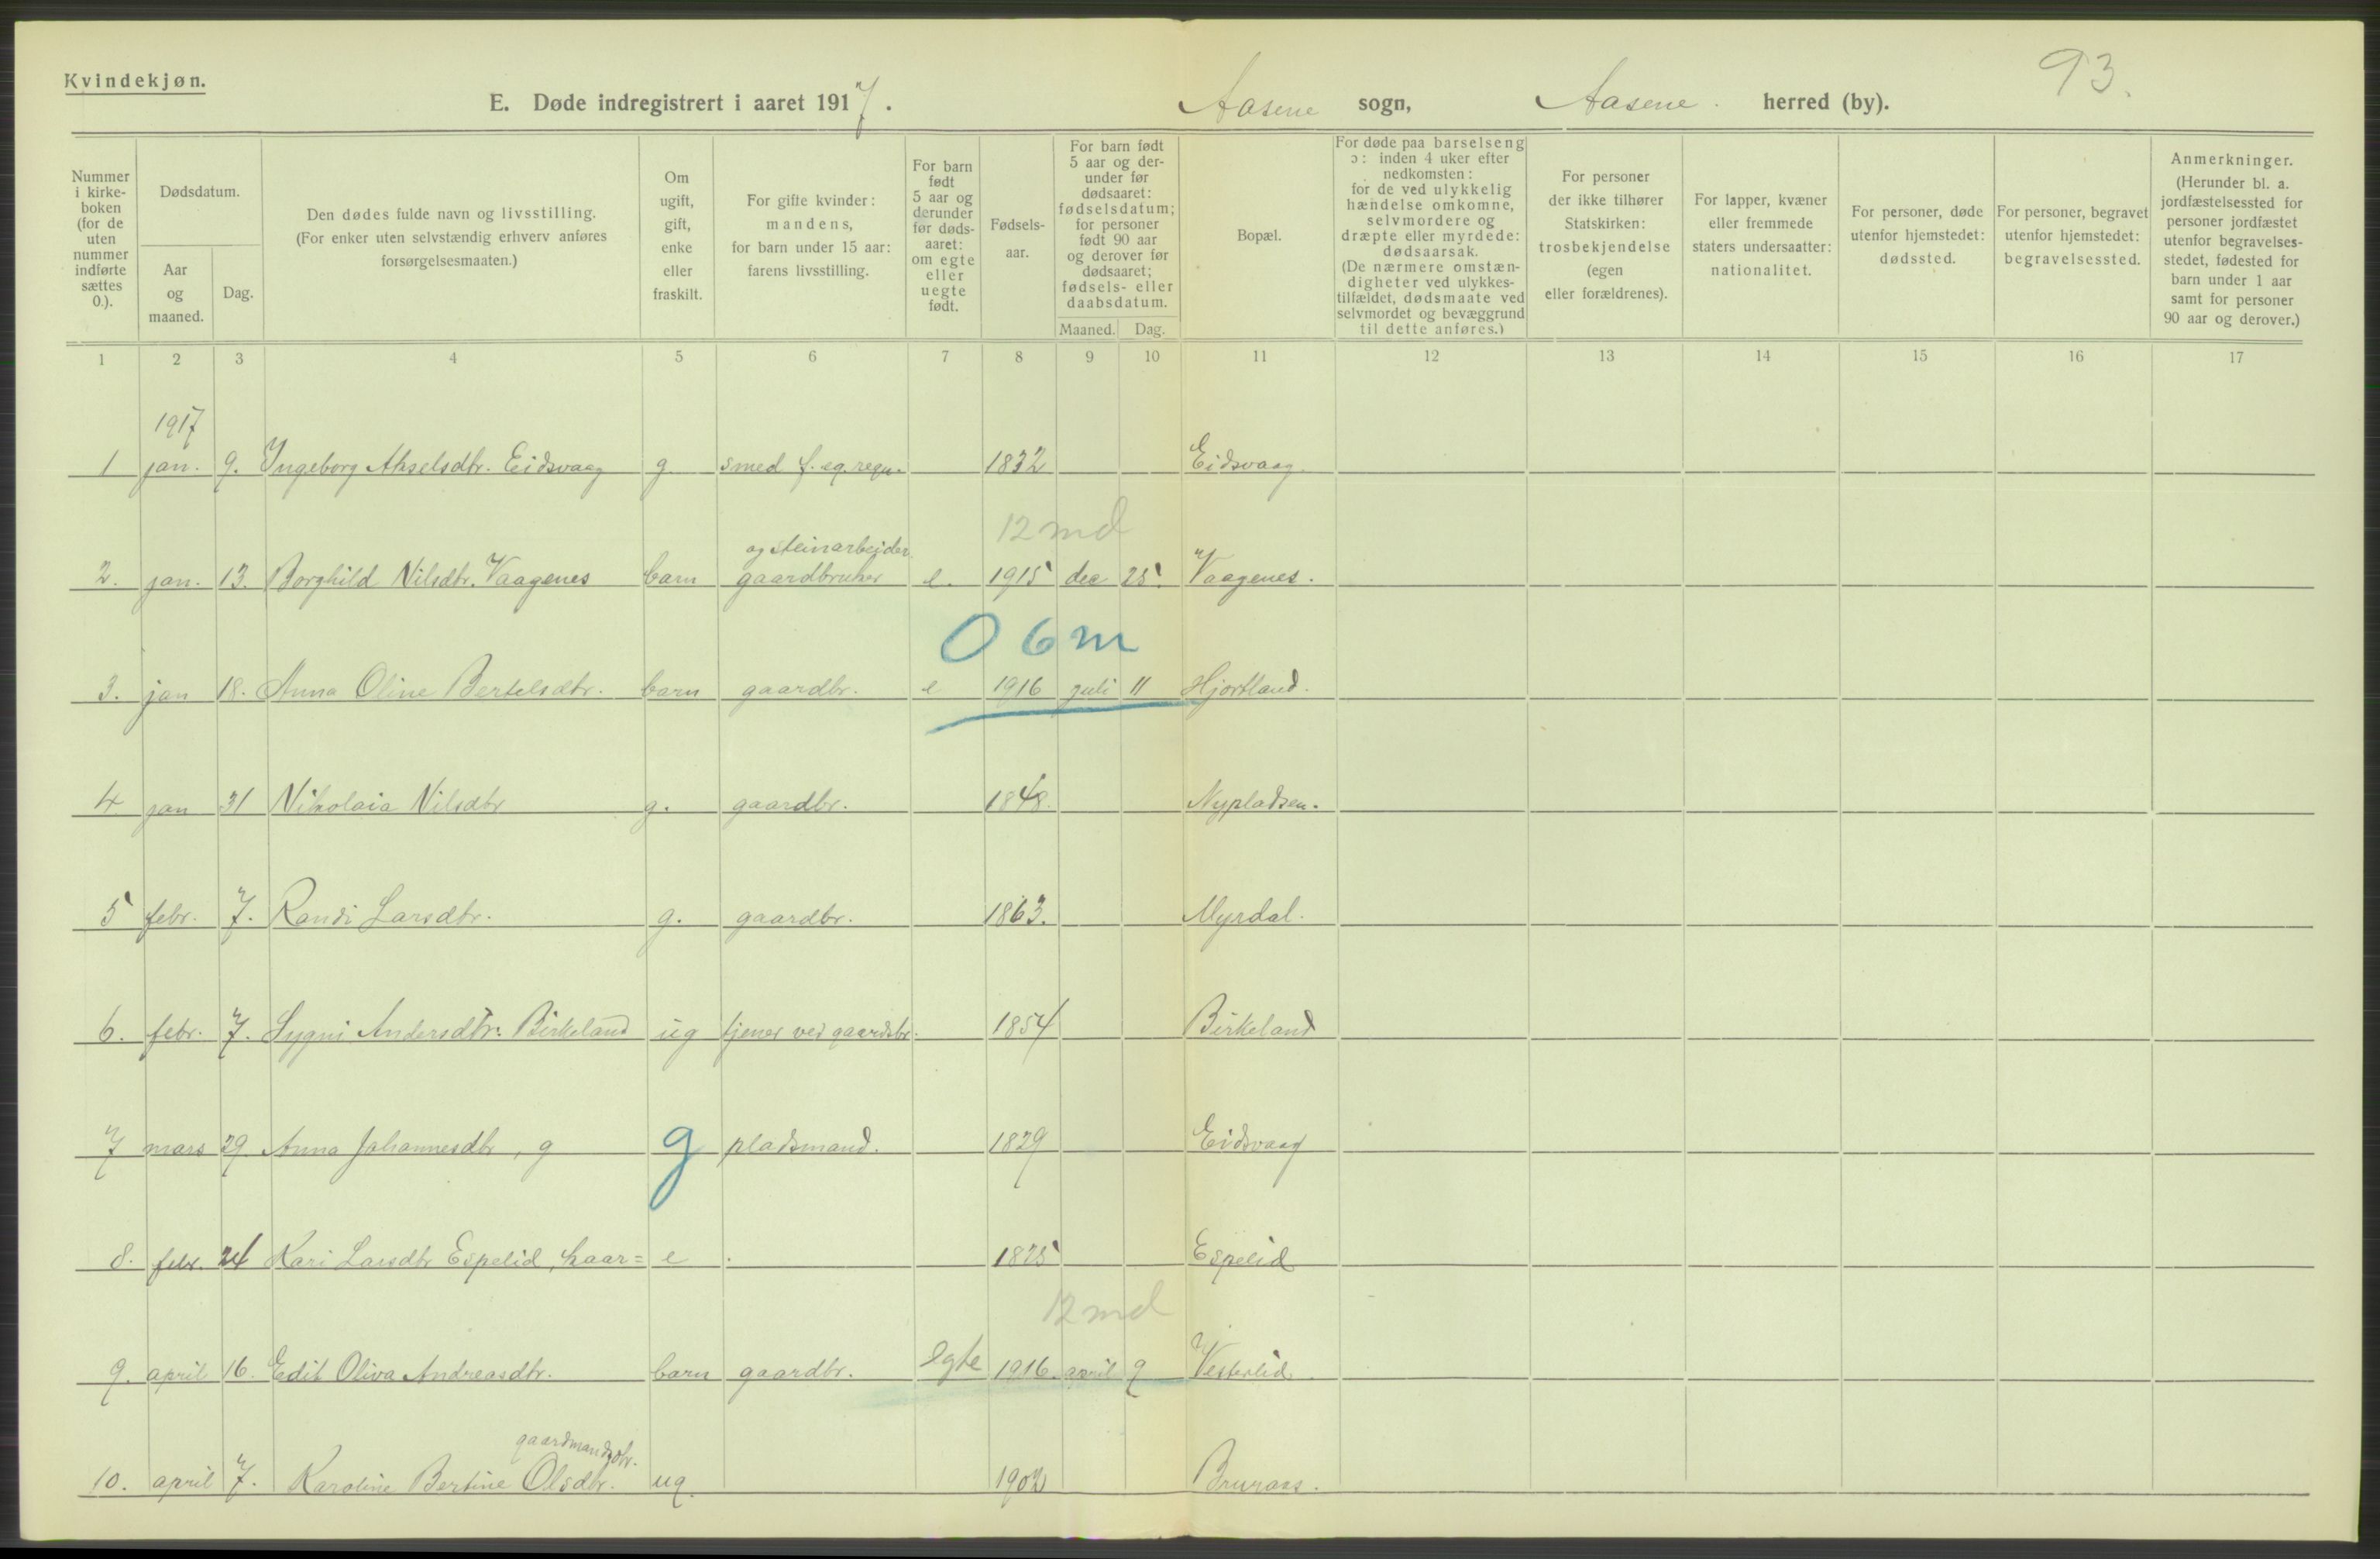 93.
Kvindekjøn.
E. Døde indregistrert i aaret 1917. Aasene sogn, Aasene. herred (by).
Nummer i kirke- boken (for de uten nummer indførte sættes 0.).
Dødsdatum.
Aar og maaned.
Dag.
Den dødes fulde navn og livsstilling. (For enker uten selvstændig erhverv anføres forsørgelsesmaaten.)
Om ugift, gift, enke eller fraskilt.
For gifte kvinder: mandens, for barn under 15 aar: farens livsstilling.
For barn født 5 aar og derunder før døds- aaret: om egte eller uegte født.
Fødsels- aar.
For barn født 5 aar og der- under før dødsaaret: fødselsdatum; for personer født 90 aar og derover før dødsaaret; fødsels- eller daabsdatum.
Maaned. Dag.
Bopæl.
For døde paa barselseng ɔ: inden 4 uker efter nedkomsten: for de ved ulykkelig hændelse omkomne, selvmordere og dræpte eller myrdede: dødsaarsak. (De nærmere omstæn- digheter ved ulykkes- tilfældet, dødsmaate ved selvmordet og bevæggrund til dette anføres.)
For personer der ikke tilhører Statskirken: trosbekjendelse (egen eller forældrenes).
For lapper, kvæner eller fremmede staters undersaatter: nationalitet.
For personer, døde utenfor hjemstedet: dødssted.
For personer, begravet utenfor hjemstedet: begravelsessted.
Anmerkninger. (Herunder bl. a. jordfæstelsessted for personer jordfæstet utenfor begravelses- stedet, fødested for barn under 1 aar samt for personer 90 aar og derover.)
1 2 3 4 5 6 7 8 9 10 11 12 13 14 15 16 17
1917
1 jan. 9. Ingeborg Akselsdtr. Eidsvaag g. smed f. eg. regn. 1832 Eidsvaag.
12 md
og steinarbeider
2. jan. 13. Borghild Nilsdtr. Vaagenes barn gaardbruker e. 1915 dec 25. Vaagenes.
0 6 m
3. jan 18. Anna Oline Bertelsdtr. barn gaardbr. e 1916 juli 11 Hjortland.
4 jan 31 Nikolaia Nilsdtr g. gaardbr. 1848. Nypladsen.
5 febr. 7. Randi Larsdtr. g. gaardbr. 1863. Myrdal.
6. febr. 7. Sygni Andersdtr. Birkeland ug tjener ved gaardsbr. 1854 Birkeland
7 mars 29 Anna Johannesdtr, g g pladsmand. 1829 Eidsvaag
8. febr. 24 Kari Larsdtr Espelid, kaar= e . 1825 Espelid
12 md
9. april 16. Edit Oliva Andreasdtr. barn gaardbr. egte 1916. april 9 Vesterlid.
gaardmandsdtr.
10. april 7. Karoline Bertine Olsdtr. ug. 1902